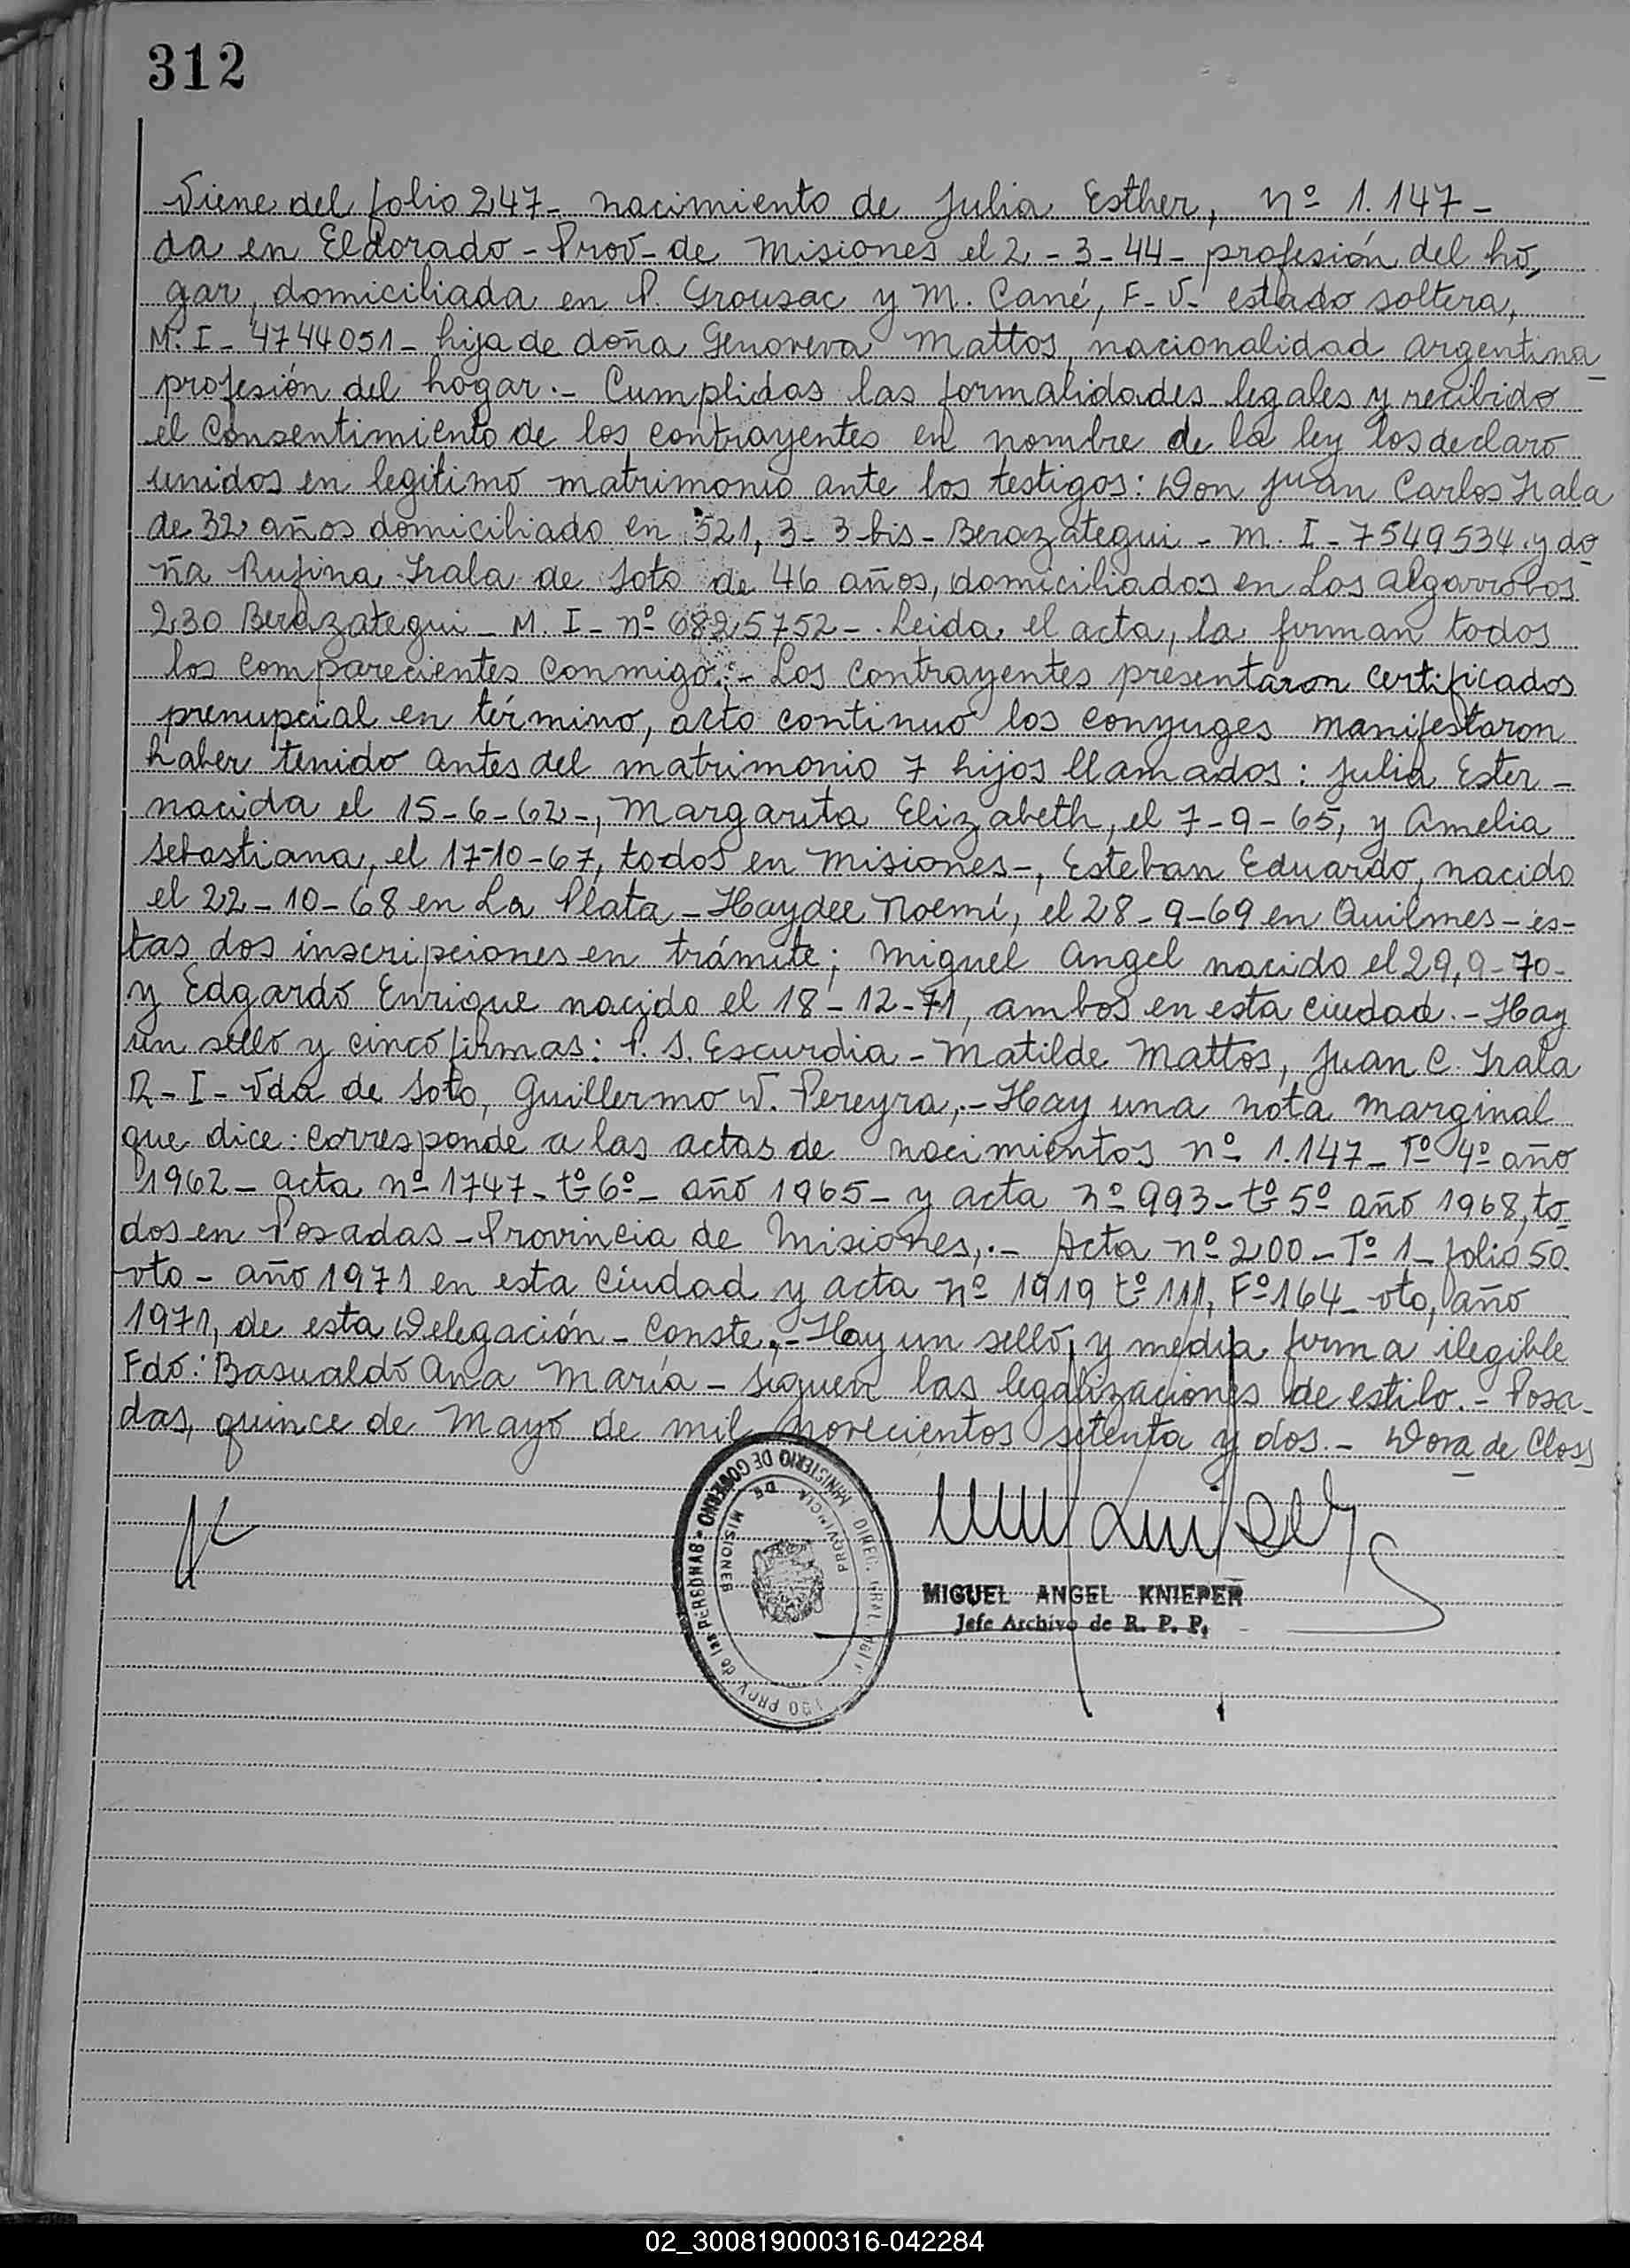 312
Viene del folio 247- nacimiento de Julia Esther, nº 1.147-
da en Eldorado - Prov- de Misiones el 2 - 3 - 44 - profesión del ho
gar, domiciliada en P. Grousac y M. Cané, F- V- estado soltera,
M. I - 4744051 - hija de doña Genoveva Mattos, nacionalidad argentina
profesión del hogar.- Cumplidas las formalidades legales y recibido
el Consentimiento de los contrayentes en nombre de la ley los declaro
unidos en legitimo matrimonio ante los testigos: Don Juan Carlos Irala
de 32 años domiciliado en 521, 3- 3 bis - Berazategui - M. I - 7549534 y do
ña Rufina Irala de Soto de 46 años, domiciliados en Los Algarrobos
230 Berazategui - M. I - nº 6825752 -. Leida el acta, la firman todos
los comparecientes conmigo.- Los Contrayentes presentaron certificados
prenupcial en término, acto continuo los conyuges manifestaron
haber tenido antes del matrimonio 7 hijos llamados: Julia Ester -
nacida el 15 - 6 - 62 -, Margarita Elizabeth, el 7 - 9 - 65, y Amelia
Sebastiana, el 17-10-67, todos en Misiones -, Esteban Eduardo, nacido
el 22 - 10 - 68 en La Plata - Haydee Noemí, el 28 - 9 - 69 en Quilmes - es-
tas dos inscripciones en trámite; Miguel Angel nacido el 29, 9 - 70 -
y Edgardo Enrique nacido el 18 - 12 - 71, ambos en esta ciudad. - Hay
un sello y cinco firmas: P. S. Escurdia - Matilde Mattos, Juan C. Irala
R - I - Vda de Soto, Guillermo W. Pereyra,.- Hay una nota marginal
que dice: corresponde a las actas de nacimientos nº 1.147 - Tº 4º año
1962 - acta nº 1747 - tº 6º - año 1965 - y acta nº 993 - tº 5º año 1968, to
dos en Posadas - Provincia de Misiones,.- Acta nº 200 - Tº 1 - folio 50
vto - año 1971 en esta Ciudad y acta nº 1919 tº 111, Fº 164 - vto, año
1971, de esta Delegación - Conste,- Hay un sello y media firma ilegible
Fdo: Basualdo Ana María - Siguen las legalizaciones de estilo. - Posa-
das, quince de Mayo de mil novecientos setenta y dos. - Dora de Closs
MINISTERIO DE GOBIERNO
PROVINCIA DE MISIONES
de las PERSONAS
MIGUEL ANGEL KNIEPER
Jefe Archivo de R. P. P.
02_300819000316-042284